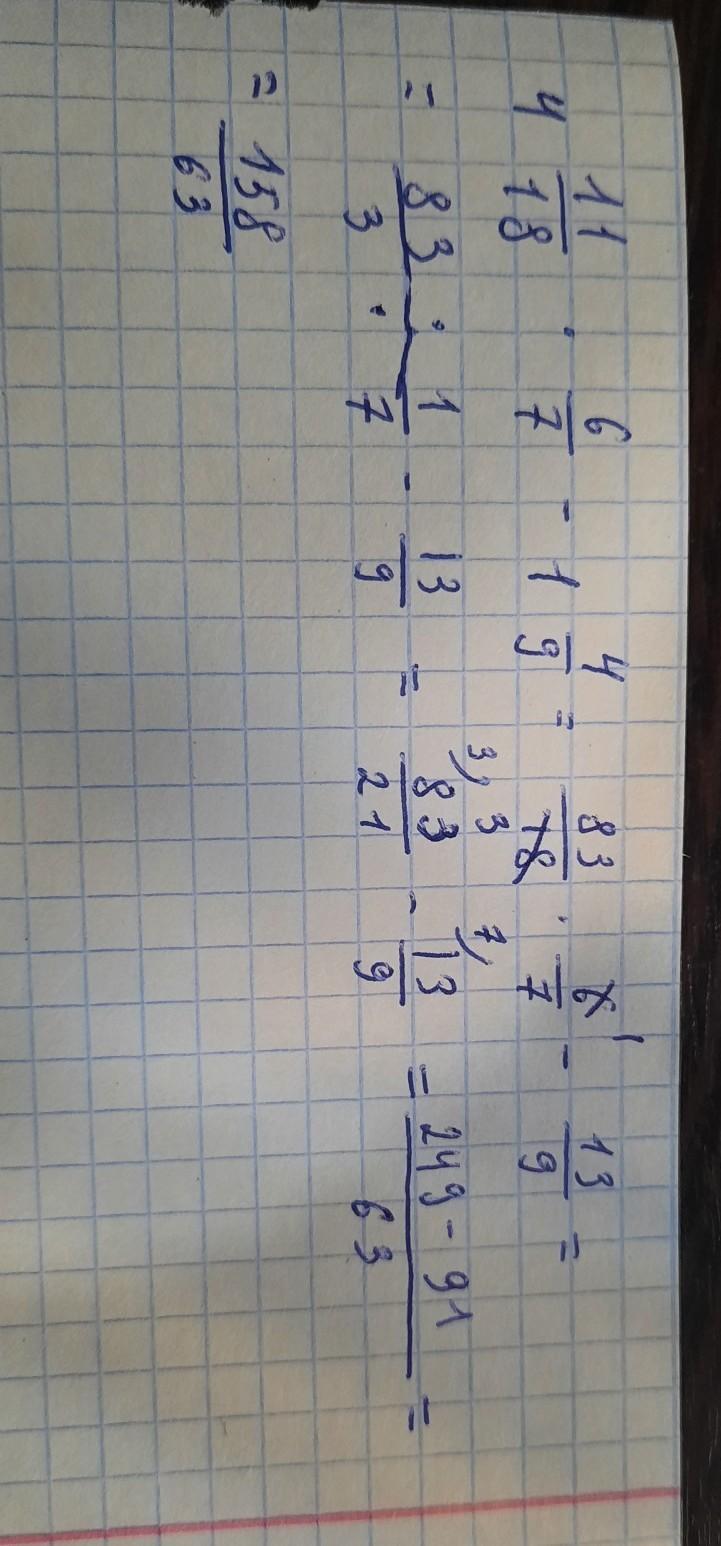 4 11/18 · 6/7 - 1 4/9 = 83/18 3 · 6/7 1 - 13/9 =
= 83 · 1/3 · 7 - 13/9 = 3) 83/21 - 7) 13/9 = 249 - 91/63 =
= 158/63